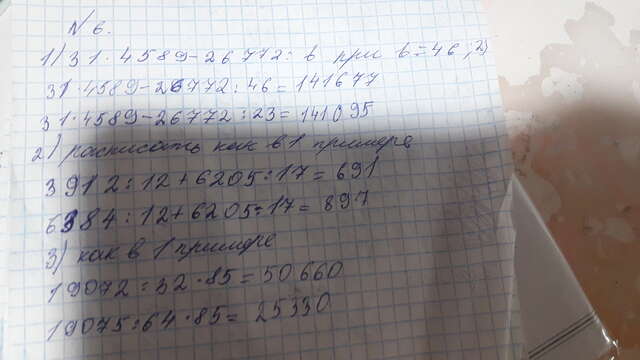 N 6.
1) 31·4589-26772:b при b=46; 23
31·4589-26772:46=141677
31·4589-26772:23=141095
2) расписать как в 1 примере
3912:12+6205:17=691
6384:12+6205:17=897
3) как в 1 примере
19072:32·85=50660
19075:64·85=25330